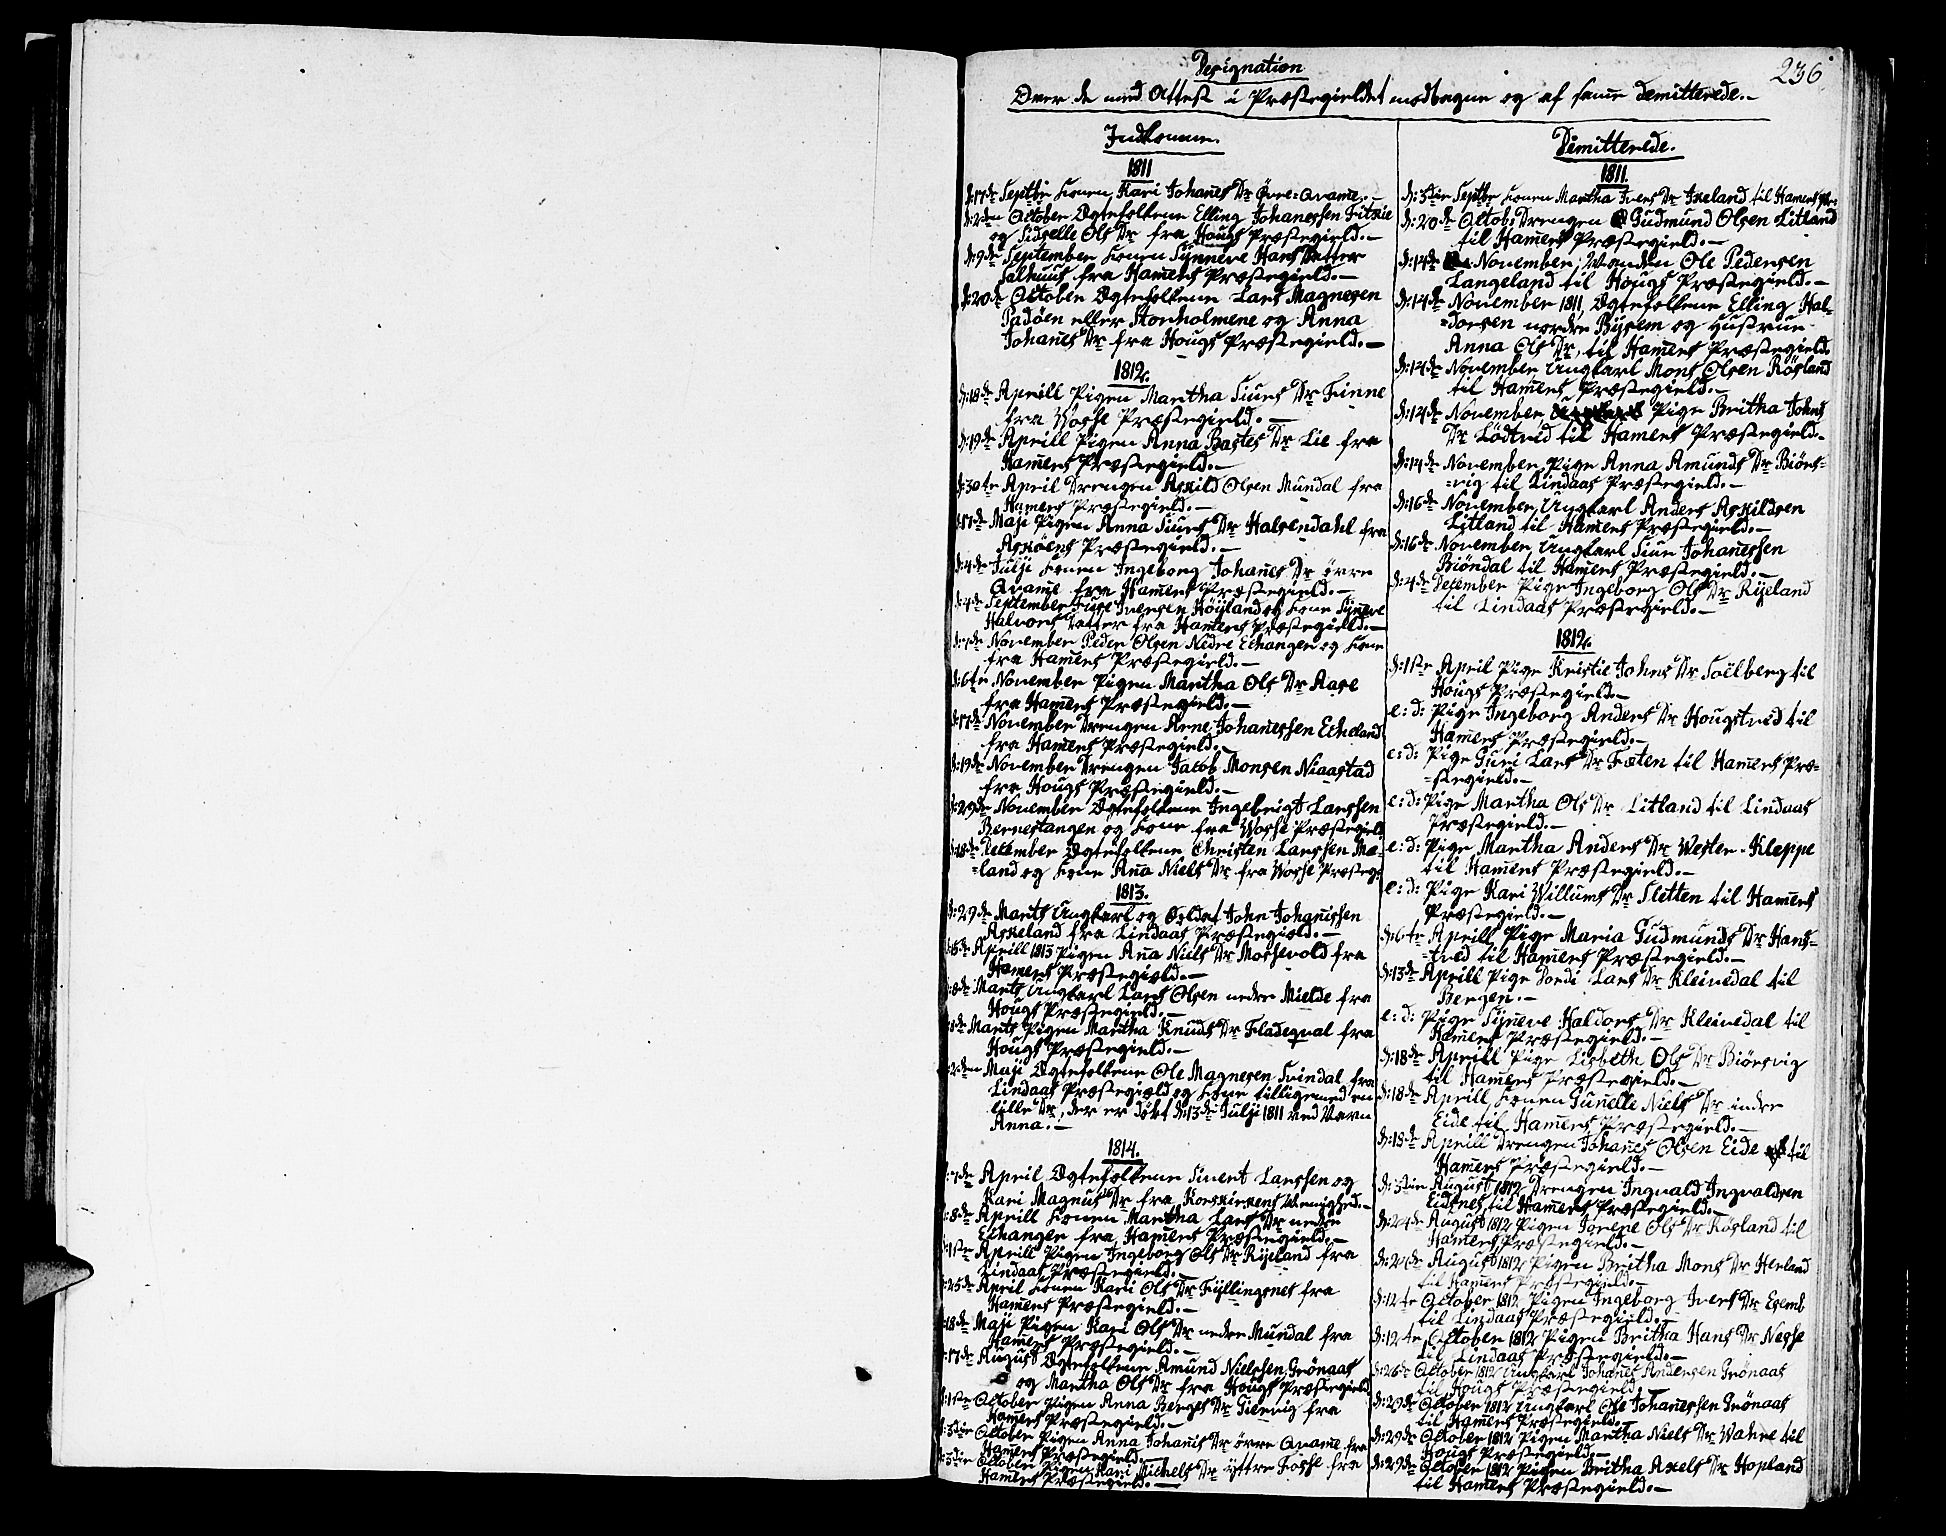 Designation
236
Over de med Attest i Præstegieldet modtagne og af samme demitterede.-
Indkomne.
1811
d: 17de Septbr Konen Kari Johanes Dr Øvre-Qvame.-
d: 2den October Ægtefolkene Elling Johanessen Fitxie
og Sidselle Ols Dr fra Hougs Præstegield.-
d: 9de September Konen Synneve Hans Datter
Salhuus fra Hamers Præstegield.-
d: 20de October Ægtefolkene Lars Magnesen
Padøen eller Storholmene og Anna
Johanes Dr fra Hougs Præstegield.-
1812.
d: 18de Aprill Pigen Martha Siurs Dr Finne
fra Vosse Præstegield.-
d: 19de Aprill Pigen Anna Bastes Dr Lie fra
Hamers Præstegield.-
d: 30te April Drengen Askild Olsen Mundal fra
Hamers Præstegield.-
d: 17de Maji Pigen Anna Siurs Dr Halsendahl fra
Askøens Præstegield.-
d: 4de Julji Konen Ingeborg Johanes Dr øvre
Qvame fra Hamers Præstegield.-
d: 4de September Ture Iversen Höyland og Kone Synneve
Halvors Datter fra Hamers Præstegield.-
November Peder Olsen Nedre Echangen og Kone
fra Hamers Præstegield.-
d: 6te November Pigen Martha Ols Dr Aase
fra Hamers Præstegield.-
d: 17de November Drengen Arne Johanessen Echeland
fra Hamers Præstegield.-
d: 19de November Drengen Jacob Monsen Niaastad
fra Hougs Præstegield.-
d: 29de November Ægtefolkene Ingebrigt Larssen
Bernestangen og Kone fra Vosse Præstegield
d: 18de December Ægtefolkene Christen Larssen Mæ-
=land og Kone Ana Niels Dr fra Vosse Præsteg:
1813.
d: 29de Marts Ungkarl og Soldat John Johanissen
Askeland fra Lindaas Præstegield.-
Aprill 1813 Pigen Ana Niels Dr Mossevold fra
Hamers Præstegield.-
d: 8de Marts Ungkarl Lars Olsen nedre Mielde fra
Hougs Præstegield.-
Marts Pigen Martha Knuds Dr Fladeqval fra
Hougs Præstegield.-
2den Maji Ægtefolkene Ole Magnesen Svindal fra
Lindaas Præstegield og Kone tilligemed en
lille Dr, der er døbt d: 13de Julji 1811 ved Navn
Anna.-
1814.
7de April Ægtefolkene Siuent Larssen og
Kari Magnus Dr fra Korskirkens Menighed.-
8de Aprill Konen Martha Lars Dr nedre
Echangen fra Hamers Præstegield.-
1ste Aprill Pigen Ingeborg Ols Dr Ryeland fra
Lindaas Præstegield.-
25de April Konen Kari Ols Dr Fyllingsnes fra
Hamers Præstegield.-
18de Maji Pigen Kari Ols Dr nedre Mundal fra
Hamers Præstegield.-
17de August Ægtefolkene Amund Nielssen Grønaas
og Martha Ols Dr fra Hougs Præstegield
1ste October Pigen Anna Berges Dr Giervig fra
Hamers Præstegield.-
3die October Pigen Anna Johanis Dr øvre Qvame fra
Hamers Præstegield.-
3die October Pigen Kari Michels Dr yttre Fosse fra
Hamers Præstegield.-
Dimitterede.
1811.
d: 3die Septbr Konen Martha Ivers Dr Ixeland til Hamers Pr:
d: 20de Octob: Drengen Gudmund Olsen Litland
til Hamers Præstegield.-
d: 14de November, Manden Ole Pedersen
Langeland til Hougs Præstegield.-
d: 14de November 1811, Ægtefolkene Elling Hal-
=dorsen nordre Bysem og Hustrue
Anna Ols Dr, til Hamers Præstegield
d: 14de November Ungkarl Mons Olsen Røsland
til Hamers Præstegield.-
d: 14de November Pige Britha Johns
Dr Lødtvid til Hamers Præstegield.-
d: 14de November Pige Anna Amunds Dr Biörs-
=vig til Lindaas Præstegield.-
d: 16de November, Ungkarl Anders Askildsen
Litland til Hamers Præstegield.-
d: 16de November Ungkarl Siur Johanessen
Biöndal til Hamers Præstegield.-
d: 4de December Pige Ingeborg Ols Dr Ryeland
til Lindaas Præstegield.-
1812.
d: 1ste April Pige Kristie Johns Dr Soelberg til
Hougs Præstegield.-
e: d: Pige Ingeborg Anders Dr Hougstved til
Hamers Præstegield.-
e: d: Pige Guri Lars Dr Fæten til Hamers Præ-
=stegield.-
e: d: Pige Martha Ols Dr Litland til Lindaas
Præstegield.-
e: d: Pige Martha Anders Dr Wester-Kleppe
til Hamers Præstegield.-
e: d: Pige Kari Willums Dr Sletten til Hamers
Præstegield.-
d: 6te Aprill Pige Maria Gudmunds Dr Hans-
=tved til Hamers Præstegield.-
d: 13de Aprill Pige Sordi Lars Dr Kleivedal til
Bergen.-
e: d: Pige Synneve Haldors Dr Kleivedal til
Hamers Præstegield.-
d: 18de Aprill Pige Lisbeth Ols Dr Biörsvig
til Hamers Præstegield.-
d: 18de Aprill Konen Gunelle Niels Dr indre
Eide til Hamers Præstegield.-
d: 18de Aprill Drengen Johanes Olsen Eide til
Hamers Præstegield.-
d: 3die August 1812 Drengen Ingvald Ingvaldsen
Eidsnes til Hamers Præstegield.-
d: 24de August 1812 Pigen Sørene Ols Dr Røsland til
Hamers Præstegield.-
d: 26de August 1812 Pigen Britha Mons Dr Herland
til Hamers Præstegield.-
d: 12te October 1812 Pigen Ingeborg Ivers Dr Esemb
til Lindaas Præstegield.-
d: 12te October 1812 Pigen Britha Hans Dr Nesse
til Lindaas Præstegield.-
d: 26de October 1812 Ungkarl Johanes Andersen Grønaas
til Hougs Præstegield.-
d: 29de October 1812 Ungkarl Ole Johanessen Grønaas
til Hamers Præstegield.-
d: 29de October 1812 Pigen Martha Niels Dr Wahre til
Hougs Præstegield.-
d: 29de October 1812 Pigen Britha Axels Dr Hopland
til Hamers Præstegield.-